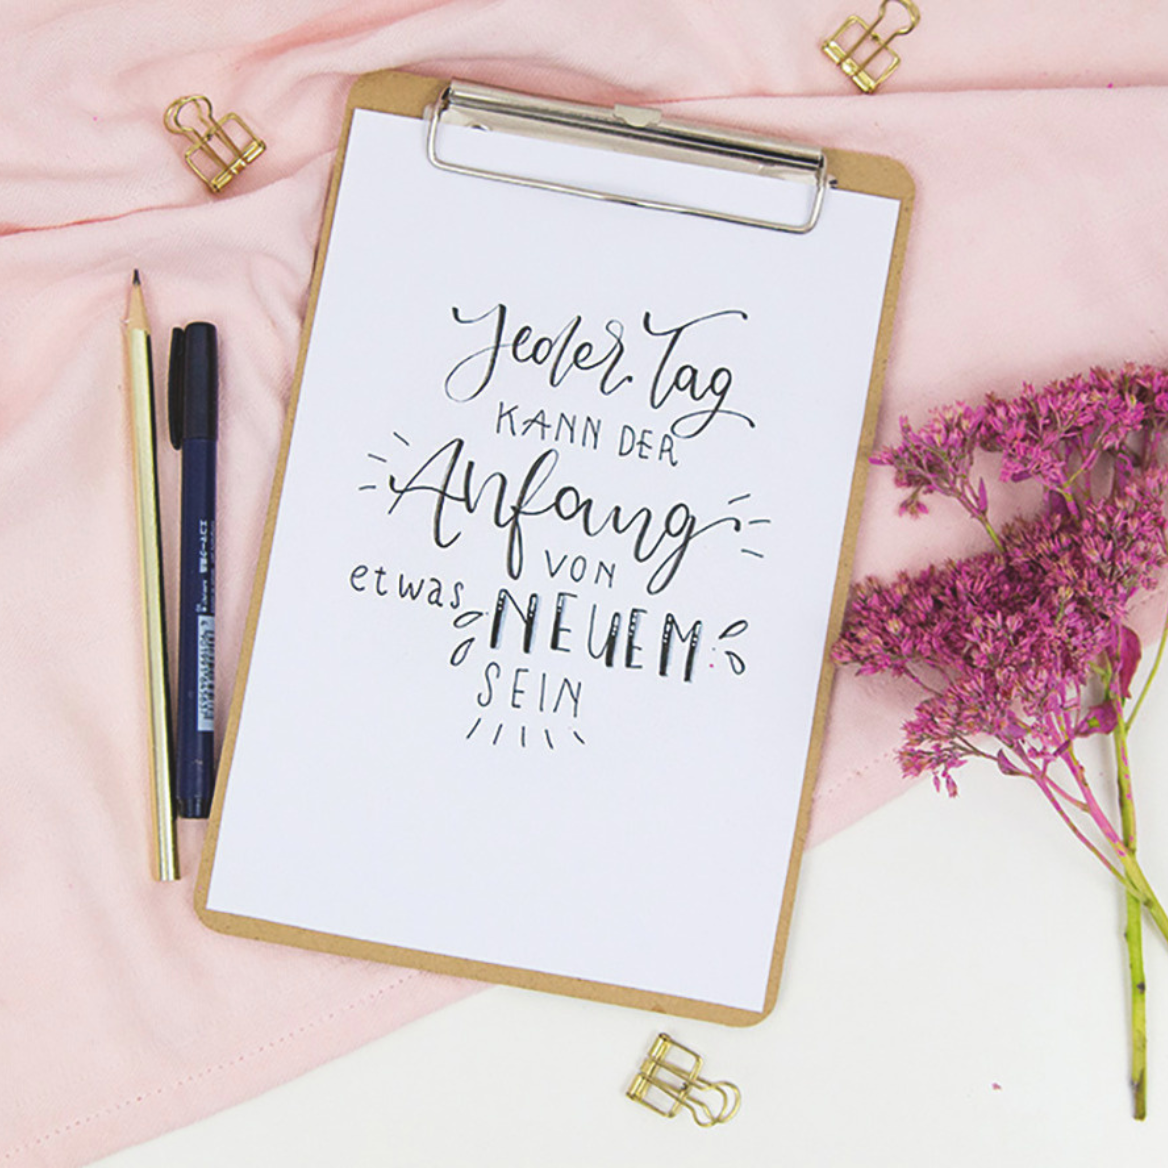 Jeder Tag
KANN DER
Anfang
VON
etwas NEUEM
SEIN